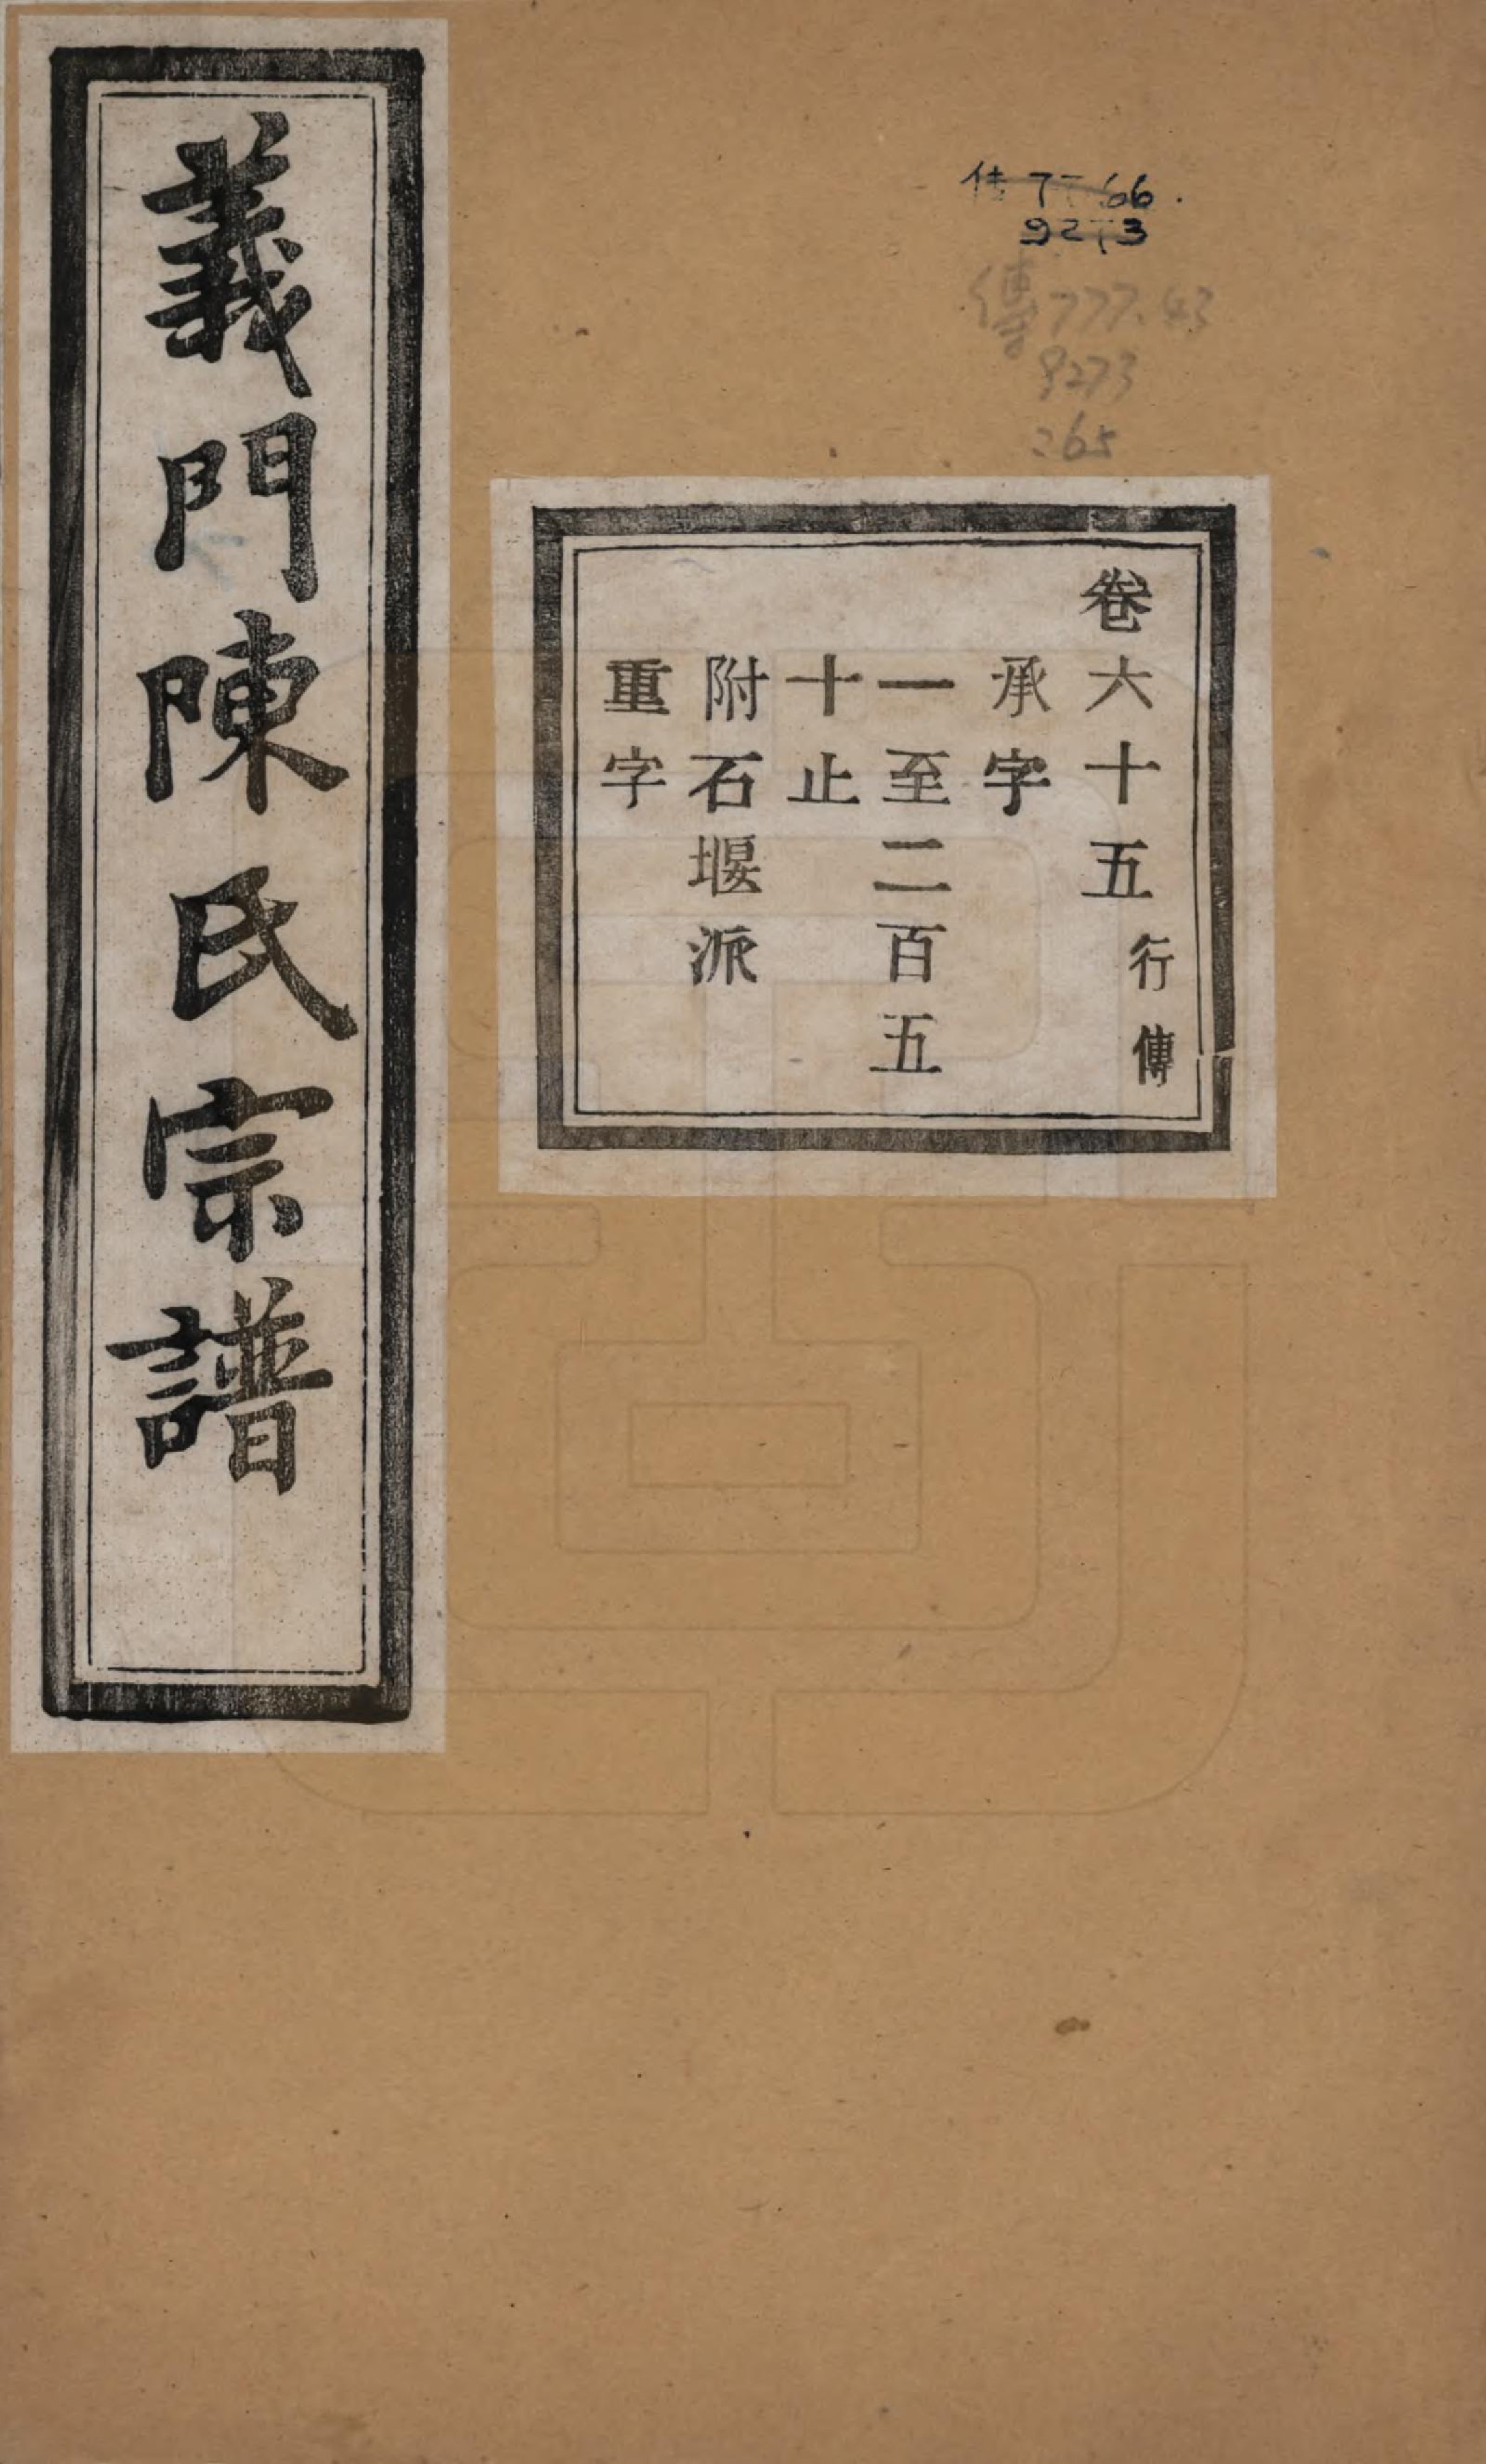 義門陳氏宗譜
傳777.43
9273
265
9273
卷六十五行傳
承字
一至二百五
十止
附石堰派
重字